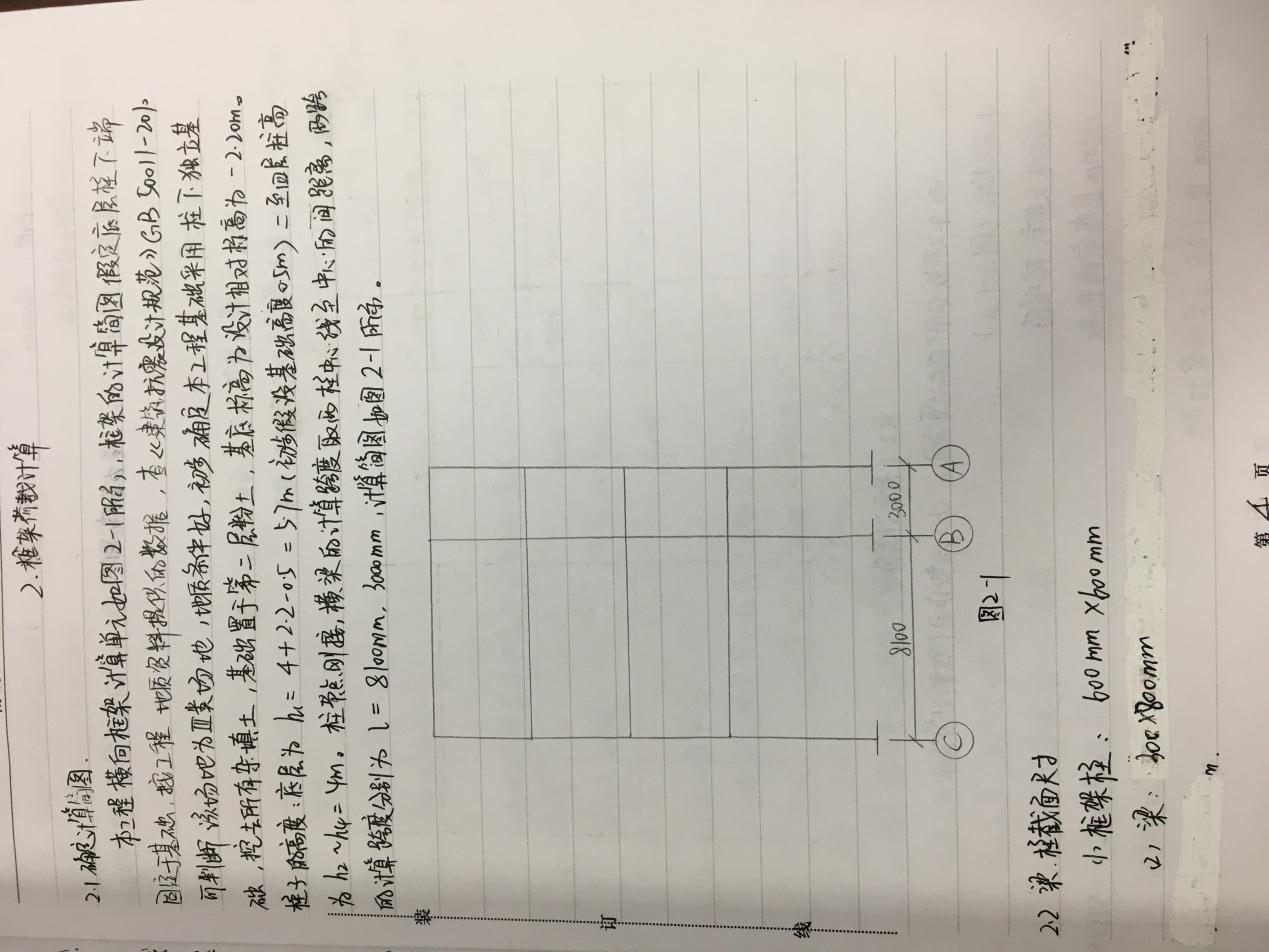 2.框架荷载计算
2.1 确定计算简图.
本工程横向框架计算单元如图2-1所示,框架的计算简图假定底层柱下端
固定于基础,按工程地质资料提供的数据,查《建筑抗震设计规范》GB 50011-2010
可判断该场地为Ⅲ类场地,地质条件好,初步确定本工程基础采用柱下独立基
础,挖去所有杂填土,基础置于第二层粉土,基底标高为设计相对标高为-2.20m。
柱子的高度:底层为 h₁=4+2.2-0.5=5.7m(初步假设基础高度0.5m)二至四层柱高
为h₂~h₄=4m。柱节点刚接,横梁的计算跨度取两柱中心线至中心的间距离,两跨
的计算跨度分别为 l=8100mm、3000mm,计算简图如图2-1所示。
8100
3000
C
B
A
图2-1
2.2 梁.柱截面尺寸
1) 框架柱: 600mm×600mm
2) 梁: 300×800mm
m.
装
订
线
第4页